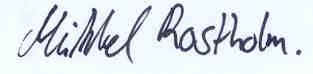 Mikkel Rostholm.